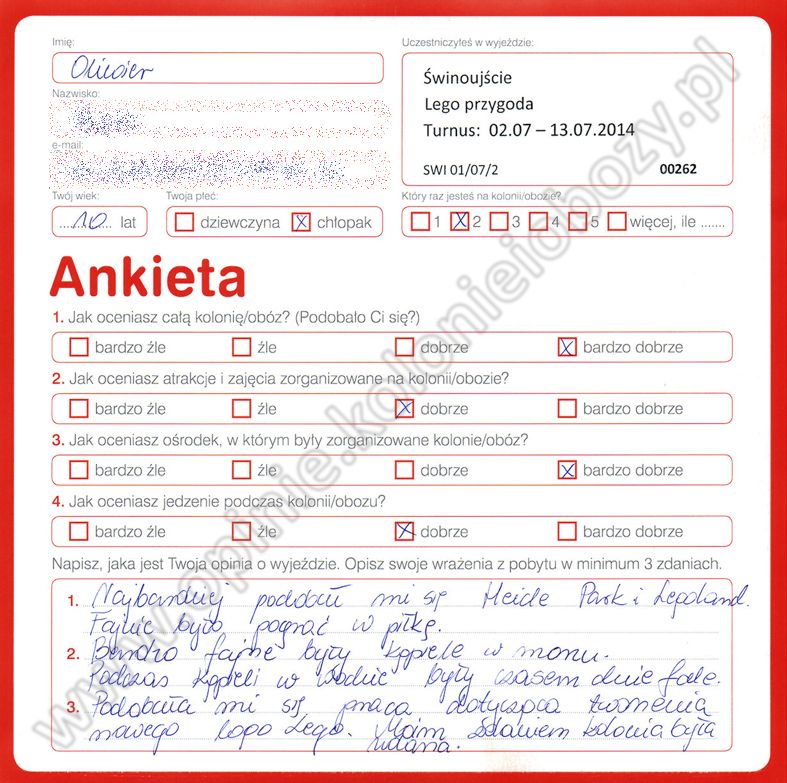 Imię:
Oliwier
Nazwisko:
e-mail:
Twój wiek:
10 lat
Twoja płeć:
dziewczyna chłopak
Uczestniczyłeś w wyjeździe:
Świnoujście
Lego przygoda
Turnus: 02.07 – 13.07.2014
SWI 01/07/2 00262
Który raz jesteś na kolonii/obozie?
1 2 3 4 5 więcej, ile .......
Ankieta
1. Jak oceniasz całą kolonię/obóz? (Podobało Ci się?)
bardzo źle źle dobrze bardzo dobrze
2. Jak oceniasz atrakcje i zajęcia zorganizowane na kolonii/obozie?
bardzo źle źle dobrze bardzo dobrze
3. Jak oceniasz ośrodek, w którym były zorganizowane kolonie/obóz?
bardzo źle źle dobrze bardzo dobrze
4. Jak oceniasz jedzenie podczas kolonii/obozu?
bardzo źle źle dobrze bardzo dobrze
Napisz, jaka jest Twoja opinia o wyjeździe. Opisz swoje wrażenia z pobytu w minimum 3 zdaniach.
1. Najbardziej podobał mi się Heide Park i Legoland.
Fajnie było pograć w piłkę.
2. Bardzo fajne były kąpiele w morzu.
Podczas kąpieli w wodzie były czasem duże fale.
3. Podobała mi się praca dotycząca tworzenia
nowego logo Lego. Moim zdaniem kolonia była
udana.
www.opinie.kolonieiobozy.pl